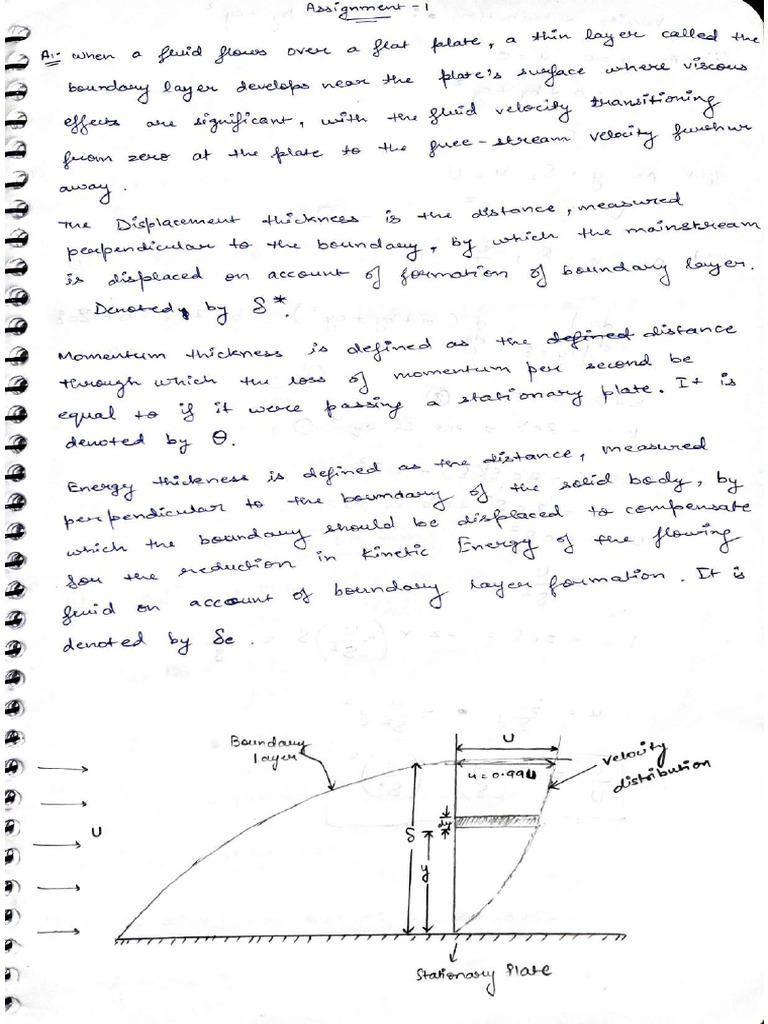 Assignment - 1
A:- When a fluid flows over a flat plate, a thin layer called the
boundary layer develops near the plate's surface where viscous
effects are significant, with the fluid velocity transitioning
from zero at the plate to the free-stream velocity further
away.
The Displacement thickness is the distance, measured
perpendicular to the boundary, by which the mainstream
is displaced on account of formation of boundary layer.
Denoted by δ*.
Momentum thickness is defined as the defined distance
through which the loss of momentum per second be
equal to if it were passing a stationary plate. It is
denoted by θ.
Energy thickness is defined as the distance, measured
perpendicular to the boundary of the solid body, by
which the boundary should be displaced to compensate
for the reduction in Kinetic Energy of the flowing
fluid on account of boundary layer formation. It is
denoted by δe.
Boundary
layer
U
u=0.99U
velocity
distribution
U
δ
dy
y
Stationary Plate